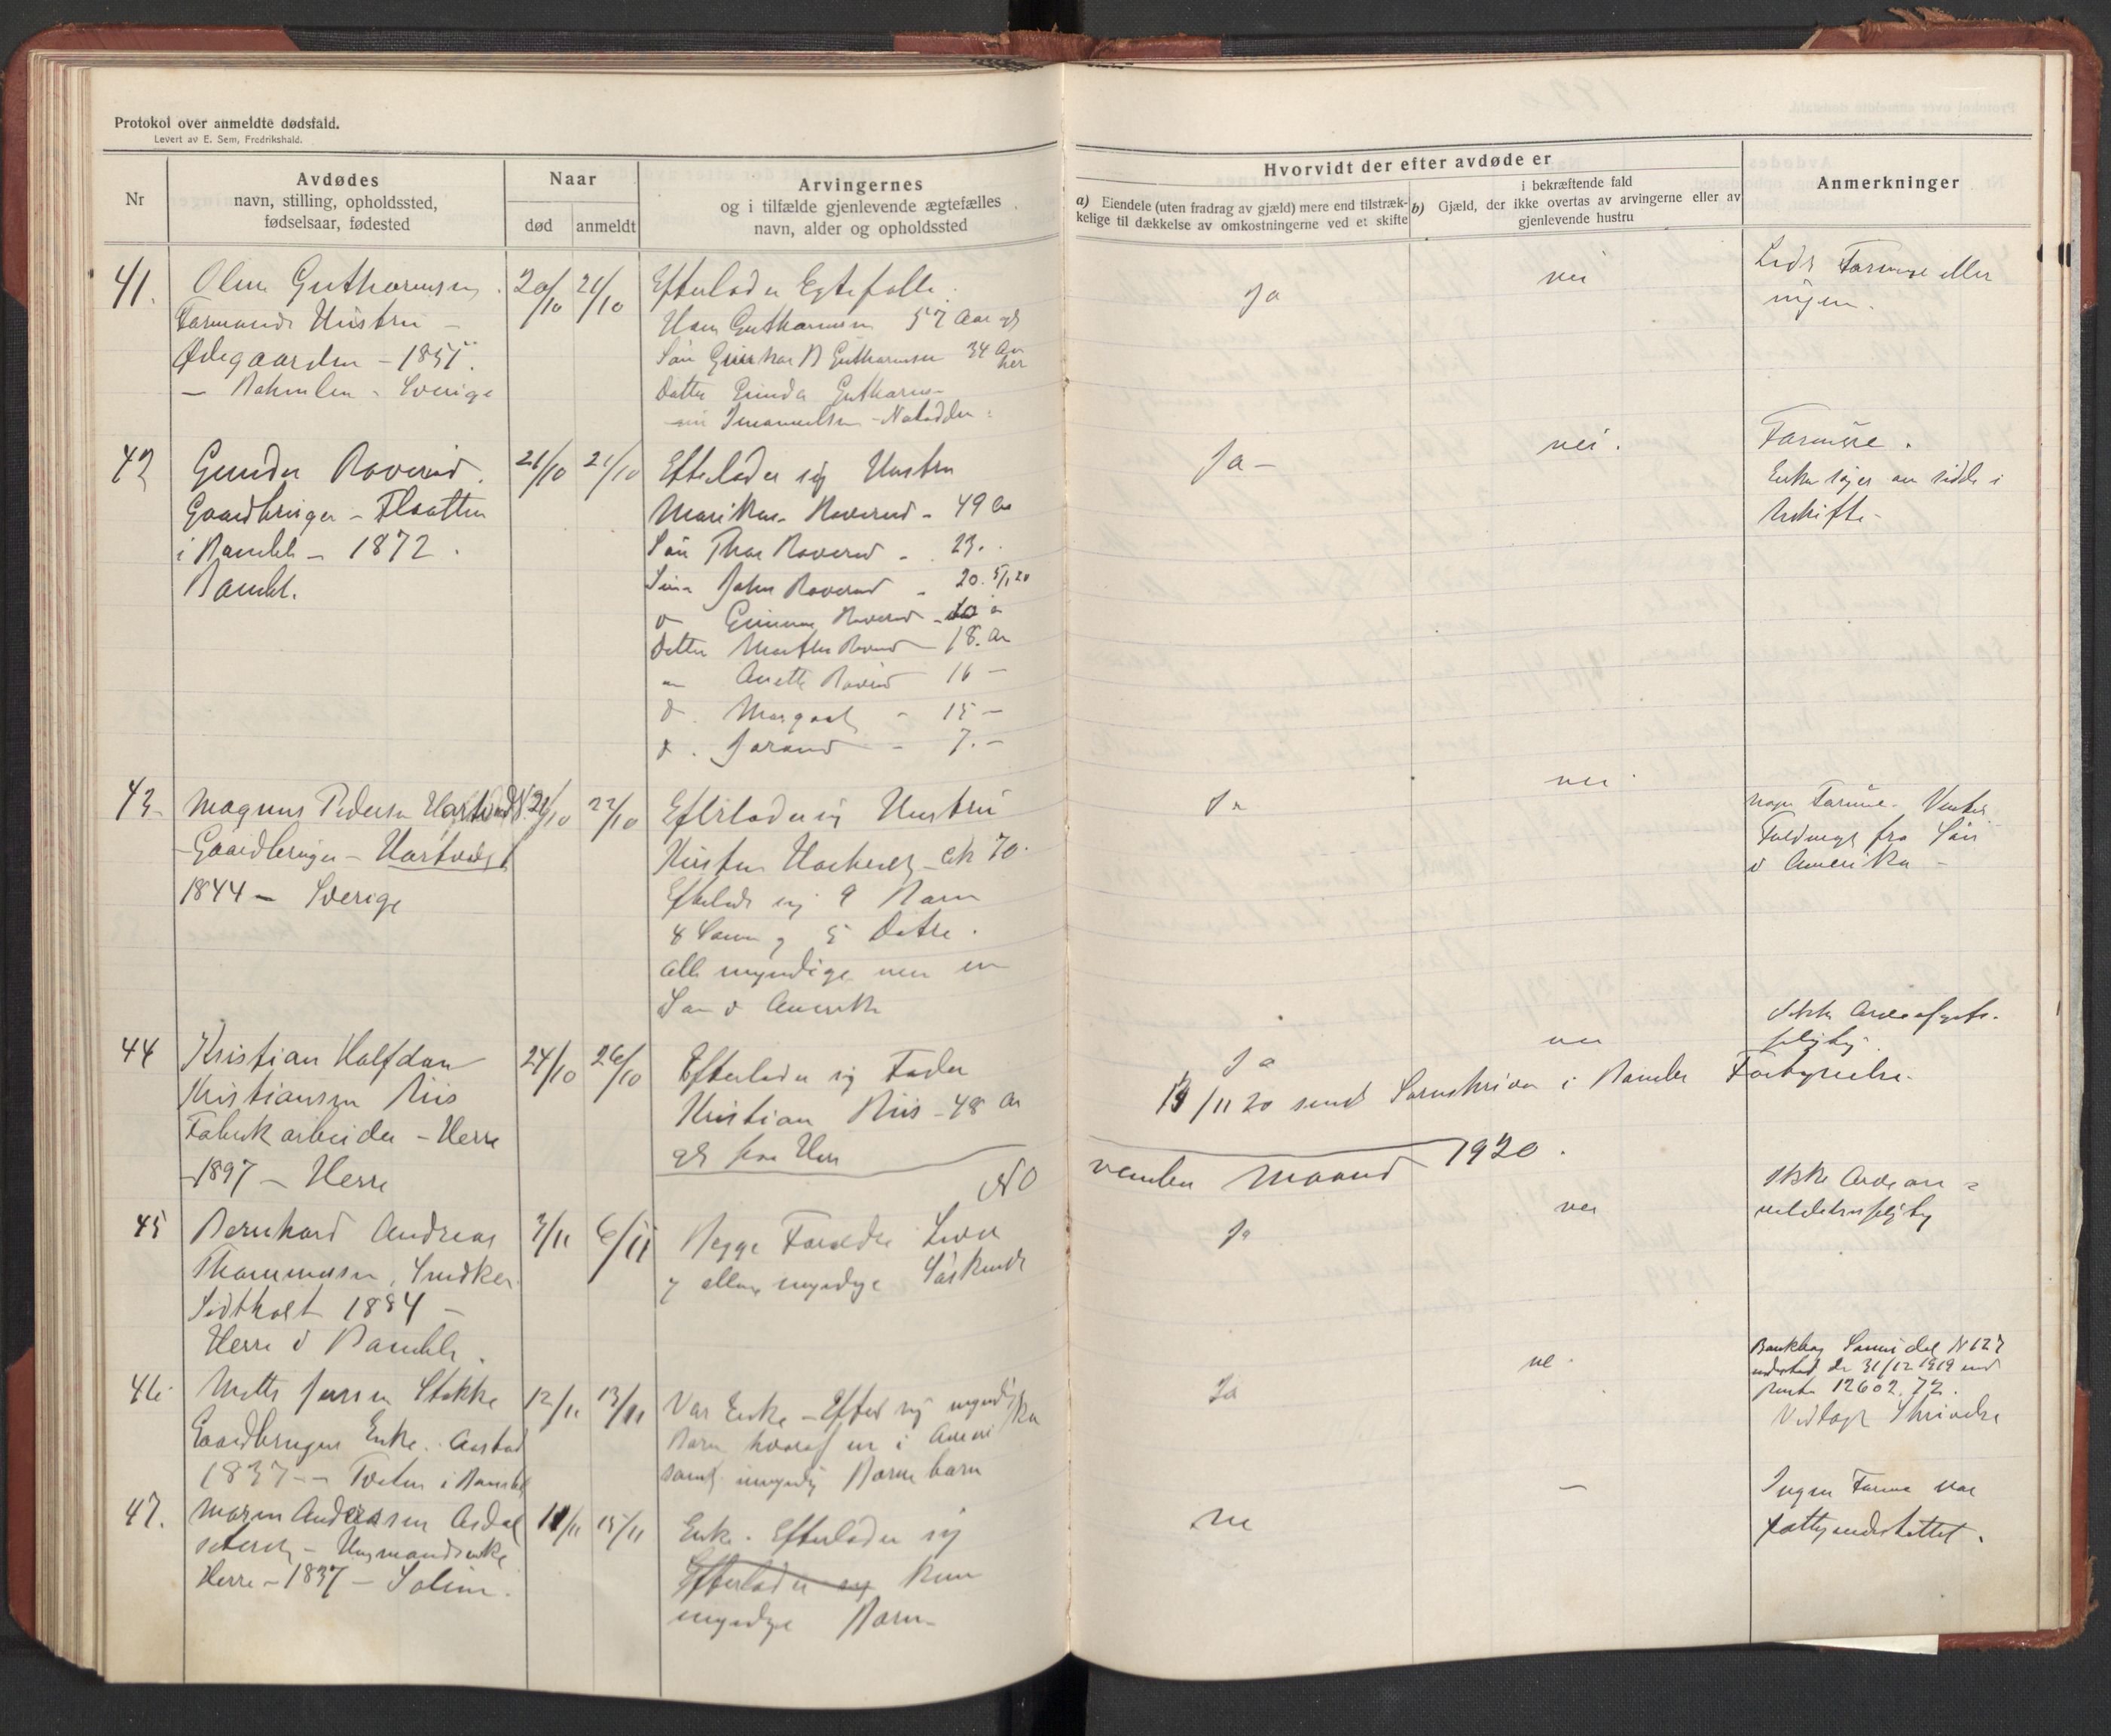 Protokol over anmeldte dødsfald.
Levert av E. Sem, Fredrikshald.
Nr
Avdødes
navn, stilling, opholdssted,
fødselsaar, fødested
Naar
død
anmeldt
Arvingernes
og i tilfælde gjenlevende ægtefælles
navn, alder og opholdssted
Hvorvidt der efter avdøde er
a) Eiendele (uten fradrag av gjæld) mere end tilstræk-
kelige til dækkelse av omkostningerne ved et skifte
i bekræftende fald
b) Gjæld, der ikke overtas av arvingerne eller av
gjenlevende hustru
Anmerkninger
41.
Oline Guthormsen
Formands Hustru –
Ødegaarden – 1851.
– Bahuslen – Sverige
20/10
21/10
Efterlader Egtefolle.
Hans Guthormsen 57 Aar
Søn Gunnar B Guthormsen 34 Aar her
Datter Gunda Guthorm–
Imanuelsen – Notodden
Ja
nei
Formue eller
ingen.
42
Gunder Roverud.
Gaardbruger – Flaatten
i Bamble – 1872.
Bamble.
21/10
21/10
Efterlader sig Hustru
Roverud – 49 Aar
Søn Thor Roverud – 23.
Søn John Roverud – 20. 5/1 20
Roverud
Datter Marthe Roverud – 18. Aar
Anette Roverud 16 –
Margaret – 15 –
Jorand – 7. –
Ja –
nei.
Formue.
Enken siger an sidde i
Uskifte –
43.
Magnus Pedersen Hartvedt
– Gaardbruger – Hartvedt
1844 – Sverige
21/10
22/10
Efterlader sig Hustru
Kirsten – ck 70.
Efterlader sig 9 Barn
4 Sønner og 5 Døtre.
alle myndige men en
Søn i Amerika
Ja
nei
Nogen Formue. Venter
Fuldmagt fra Søn
i Amerika –
44
Kristian Halfdan
Kristiansen Riis
Fabrikarbeider – Herre
– 1897 – Herre
24/10
26/10
Efterlader sig Fader
Kristian Riis – 48 Aar
paa Herre
Ja
nei
Ikke Arveafgifts-
pligtig.
/11 20 sendt Sorenskriver i Bamble Fortegnelse.
November Maaned 1920.
45
Bernhard Andreas
Thommasen, Snedker
1884 –
Herre i Bamble.
3/11
6/11
Begge Forældre Lever
og alle myndige Søskende
Ja
nei
Ikke Arvean-
meldelsespligtig
46.
Mette Jensen Stokke
Gaardbruger Enke.
1837 – Tveten i Bamble
12/11
13/11
Var Enke – Efterl. sig myndige
Barn hvoraf en i Amerika
samt umyndig Barnebarn
Ja
nei.
Bankbog Sannidal N 127
den 31/12 1919 med
12602.72.
Vedlagt Skrivelse
47.
Maren Andersen Asdal
– Husmandsenke
Herre – 1837 – Solum.
11/11
15/11
Enke. Efterlader sig
Efterlader sig kun
myndige Barn –
nei
–
Ingen Formue var
fattigunderstøttet.